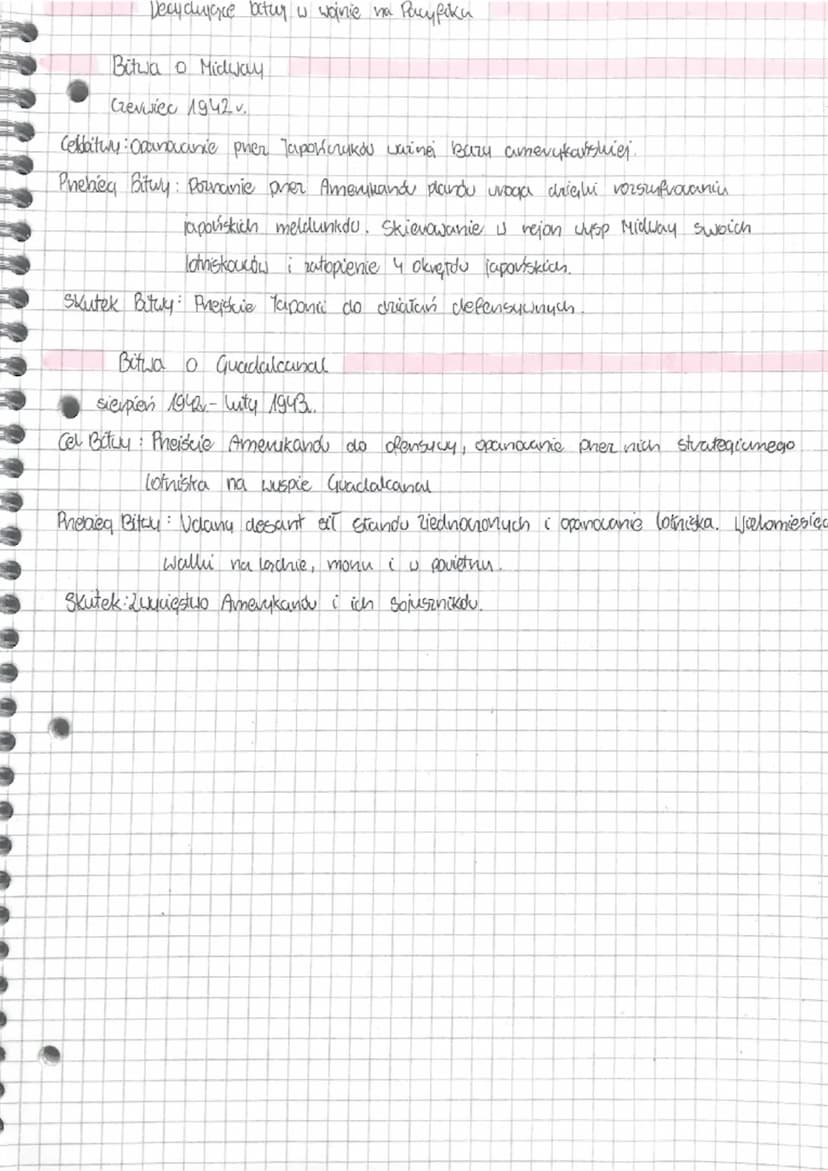 Decydujące bitwy w wojnie na Pacyfiku
Bitwa o Midway
Czerwiec 1942 r.
Cel bitwy: Opanowanie przez Japończyków ważnej Bazy amerykańskiej.
Przebieg Bitwy: Poznanie przez Amerykanów planów wroga dzięki rozszyfrowaniu
japońskich meldunków. Skierowanie w rejon wysp Midway swoich
lotniskowców i zatopienie 4 okrętów japońskich.
Skutek Bitwy: Przejście Japonii do działań defensywnych.
Bitwa o Guadalcanal
sierpień 1942r.- luty 1943r.
Cel Bitwy: Przejście Amerykanów do ofensywy, opanowanie przez nich strategicznego
lotniska na wyspie Guadalcanal
Przebieg Bitwy: Udany desant sił Stanów Zjednoczonych i opanowanie lotniska. Wielomiesięc
walki na lądzie, morzu i w powietrzu.
Skutek: Zwycięstwo Amerykanów i ich sojuszników.